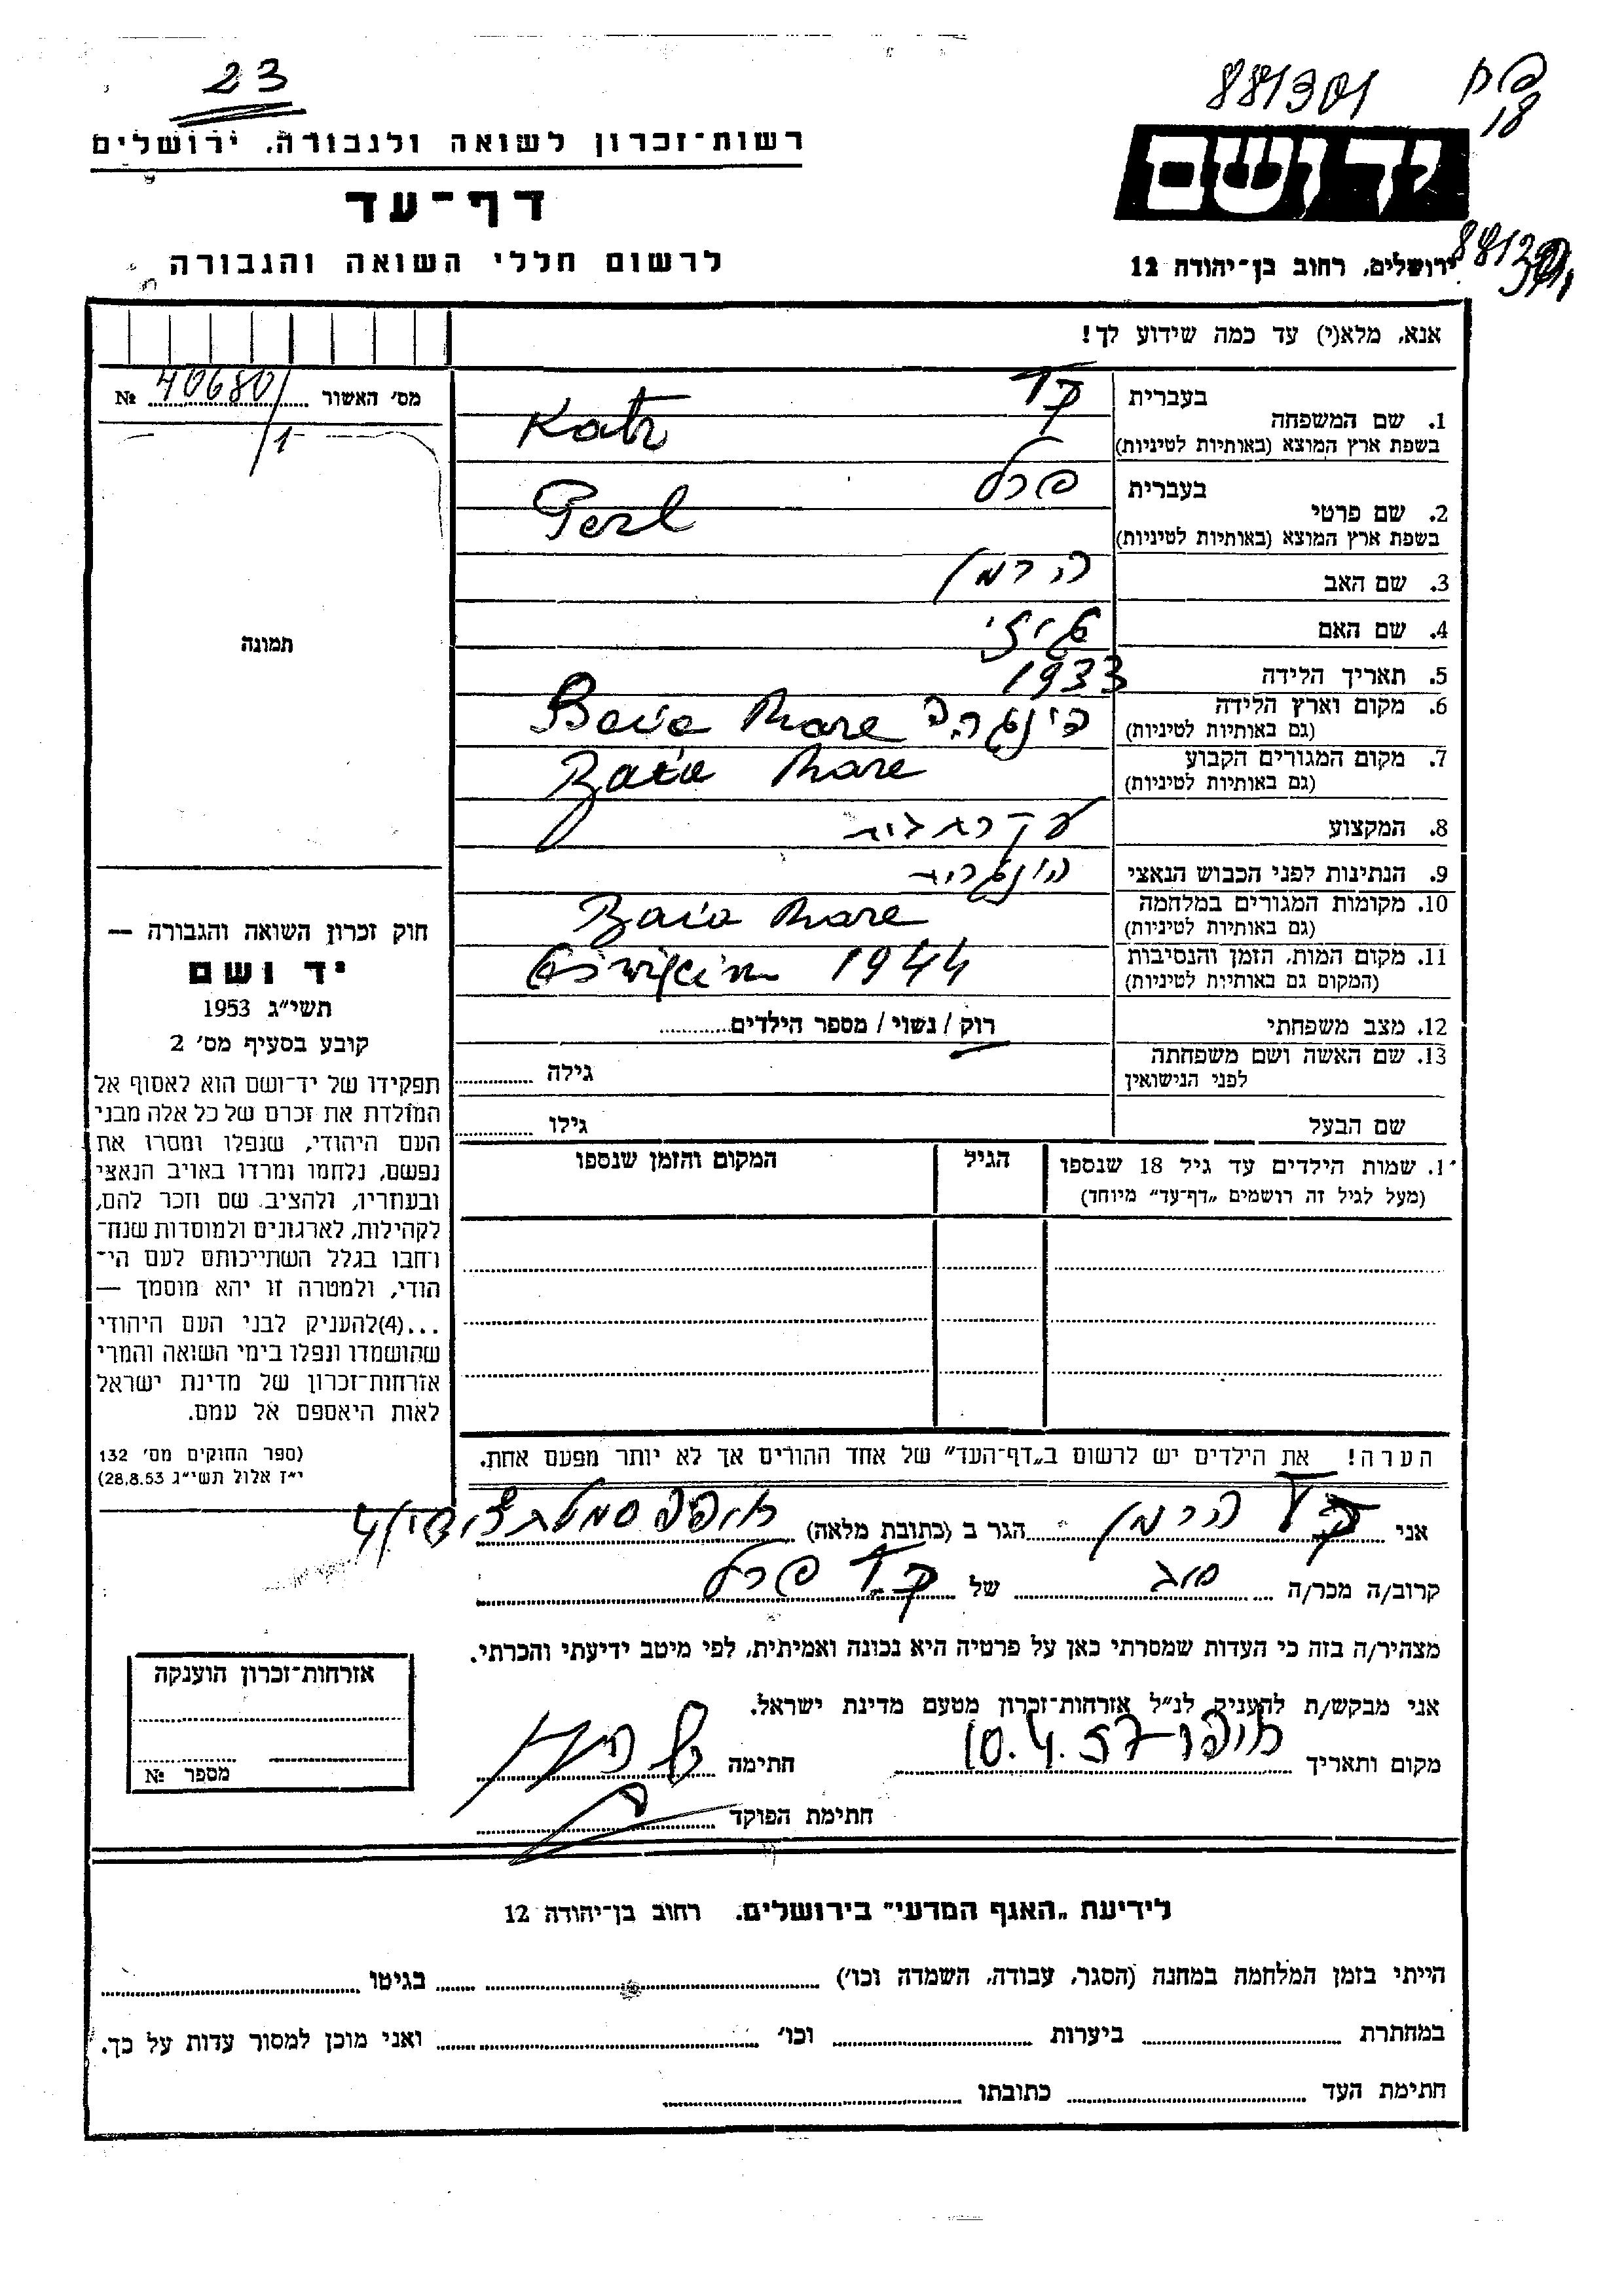 23
881301
18
רשות-זכרון לשואה ולגבורה. ירושלים
יד ושם
דף-עד
לרשום חללי השואה והגבורה
ירושלים, רחוב בן-יהודה 12
אנא, מלא(י) עד כמה שידוע לך!
מס' האשור № 40680/1
תמונה
בעברית כץ
1. שם המשפחה
בשפת ארץ המוצא (באותיות לטיניות) Katz
בעברית פרל
2. שם פרטי
בשפת ארץ המוצא (באותיות לטיניות) Perl
3. שם האב הרמן
4. שם האם
5. תאריך הלידה 1933
6. מקום וארץ הלידה
(גם באותיות לטיניות) Baia Mare
7. מקום המגורים הקבוע
(גם באותיות לטיניות) Baia Mare
8. המקצוע עקרת בית
9. הנתינות לפני הכבוש הנאצי הונגרית
10. מקומות המגורים במלחמה
(גם באותיות לטיניות) Baia Mare
11. מקום המות, הזמן והנסיבות
(המקום גם באותיות לטיניות) 1944
12. מצב משפחתי רוק / נשוי / מספר הילדים
13. שם האשה ושם משפחתה
לפני הנישואין גילה
שם הבעל גילו
חוק זכרון השואה והגבורה —
יד ושם
תשי״ג 1953
קובע בסעיף מס' 2
תפקידו של יד-ושם הוא לאסוף אל
המולדת את זכרם של כל אלה מבני
העם היהודי, שנפלו ומסרו את
נפשם, נלחמו ומרדו באויב הנאצי
ובעוזריו, ולהציב שם וזכר להם,
לקהילות, לארגונים ולמוסדות שנח־
רחבו בגלל השתייכותם לעם הי־
הודי, ולמטרה זו יהא מוסמך —
...(4)להעניק לבני העם היהודי
שהושמדו ונפלו בימי השואה והמרי
אזרחות-זכרון של מדינת ישראל
לאות היאספם אל עמם.
(ספר החוקים מס' 132
י״ז אלול תשי״ג 28.8.53)
1. שמות הילדים עד גיל 18 שנספו הגיל המקום והזמן שנספו
(מעל לגיל זה רושמים „דף-עד״ מיוחד)
הערה! את הילדים יש לרשום ב„דף-העד״ של אחד ההורים אך לא יותר מפעם אחת.
אני כץ הרמן הגר ב (כתובת מלאה)
קרוב/ה מכר/ה של כץ פרל
מצהיר/ה בזה כי העדות שמסרתי כאן על פרטיה היא נכונה ואמיתית, לפי מיטב ידיעתי והכרתי.
אני מבקש/ת להעניק לנ״ל אזרחות-זכרון מטעם מדינת ישראל.
מקום ותאריך 10.4.57 חתימה
חתימת הפוקד
אזרחות-זכרון הוענקה
מספר №
לידיעת „האגף המדעי״ בירושלים. רחוב בן-יהודה 12
הייתי בזמן המלחמה במחנה (הסגר, עבודה, השמדה וכו') בגיטו
במחתרת ביערות וכו' ואני מוכן למסור עדות על כך.
חתימת העד כתובתו